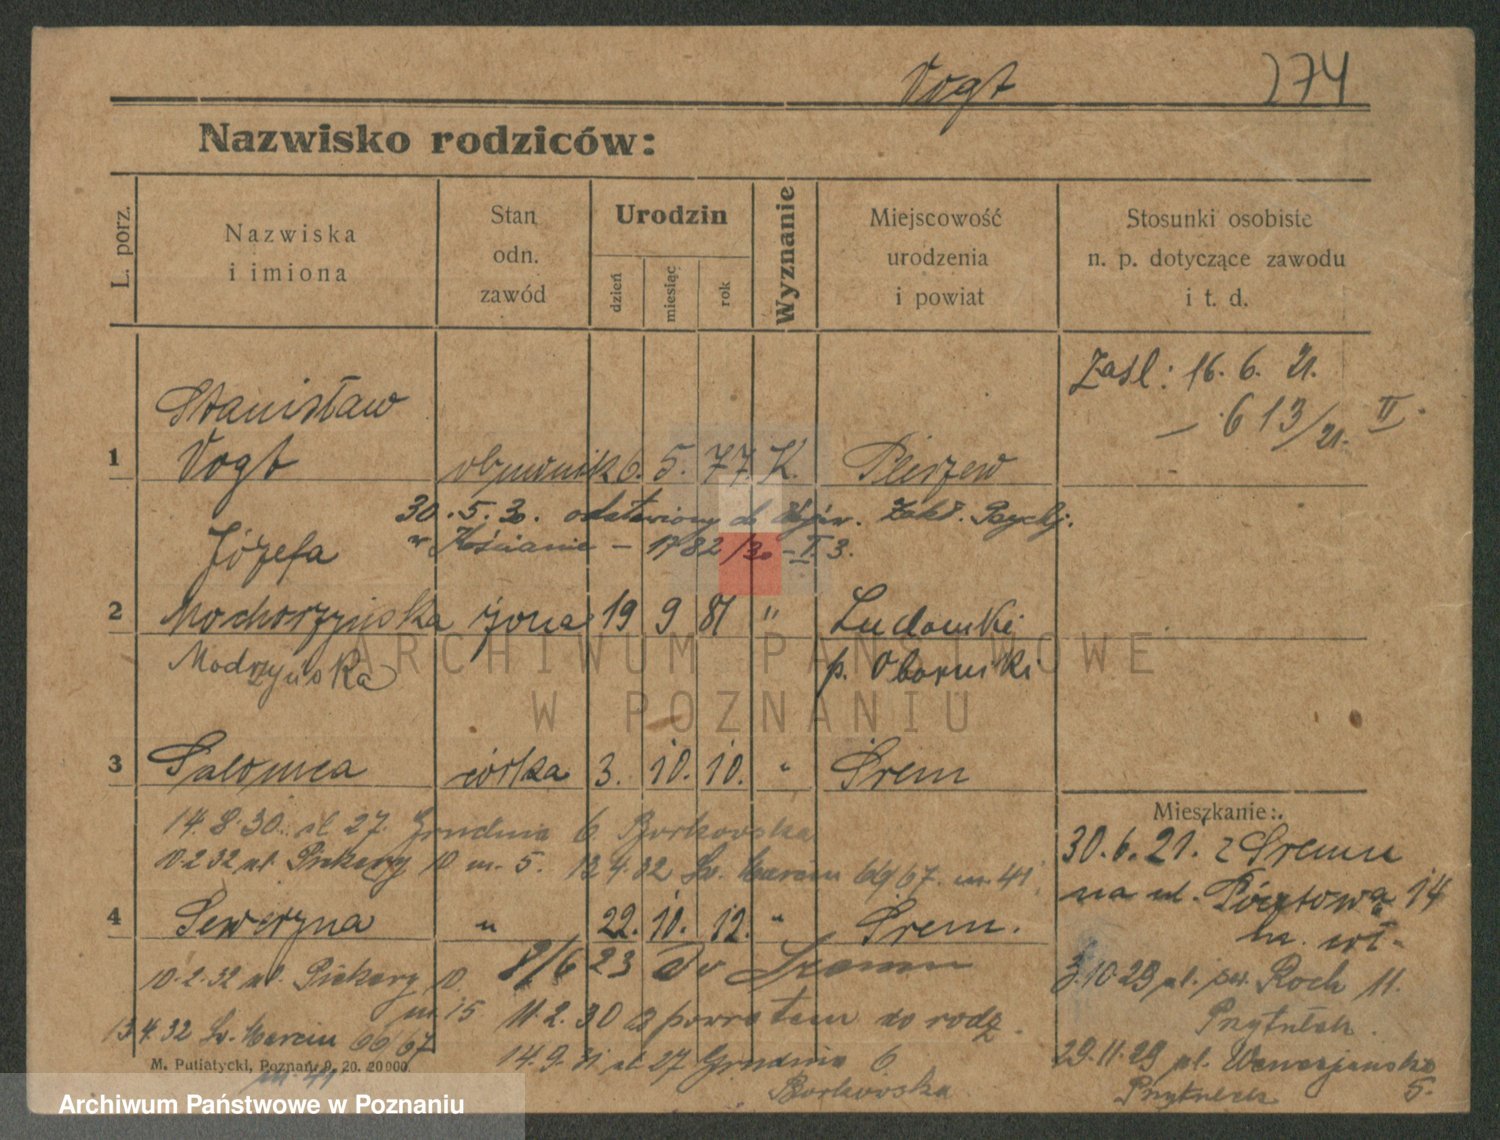 Vogt 274
Nazwisko rodziców:
L. porz.
Nazwiska
i imiona
Stan
odn.
zawód
Urodzin
dzień
miesiąc
rok
Wyznanie
Miejscowość
urodzenia
i powiat
Stosunki osobiste
n. p. dotyczące zawodu
i t. d.
Zasl: 16. 6. 21.
613/21. II.
Stanisław
1 Vogt 6. 5. 77 K. Pleszew
30. 5. 30. odstawiony do Wojew. Zakł. Psychj.
Józefa w Kościanie - 1782/30 - I 3.
2 Mochorzyńska żona 19 9 81 " Ludomki
Modrzyńska p. Oborniki
3 Salomea córka 3. 10. 10. " Śrem
14. 8. 30. ul. 27. Grudnia 6 Borkowska
10.2.32 ul. Piekary 10 m. 5. 13.4.32 Św. Marcin 66/67. m. 41.
4 Seweryna " 22. 10. 12. " Śrem.
8/6 23 do Śremu
10.2.32 ul. Piekary 10.
m. 15 11. 2. 30 z powrotem do rodz.
13.4.32 Św. Marcin 66/67
m. 41
14. 9. 31 ul. 27 Grudnia 6
Borkowska
Mieszkanie:
30. 6. 21. z Śremu
na ul. Pocztowa 14
3.10.29 ul. św. Roch 11.
Przytułek.
29.11.29 pl.
Przytułek 5.
M. Putiatycki, Poznań 9. 20. 20000.
ARCHIWUM PAŃSTWOWE
W POZNANIU
Archiwum Państwowe w Poznaniu